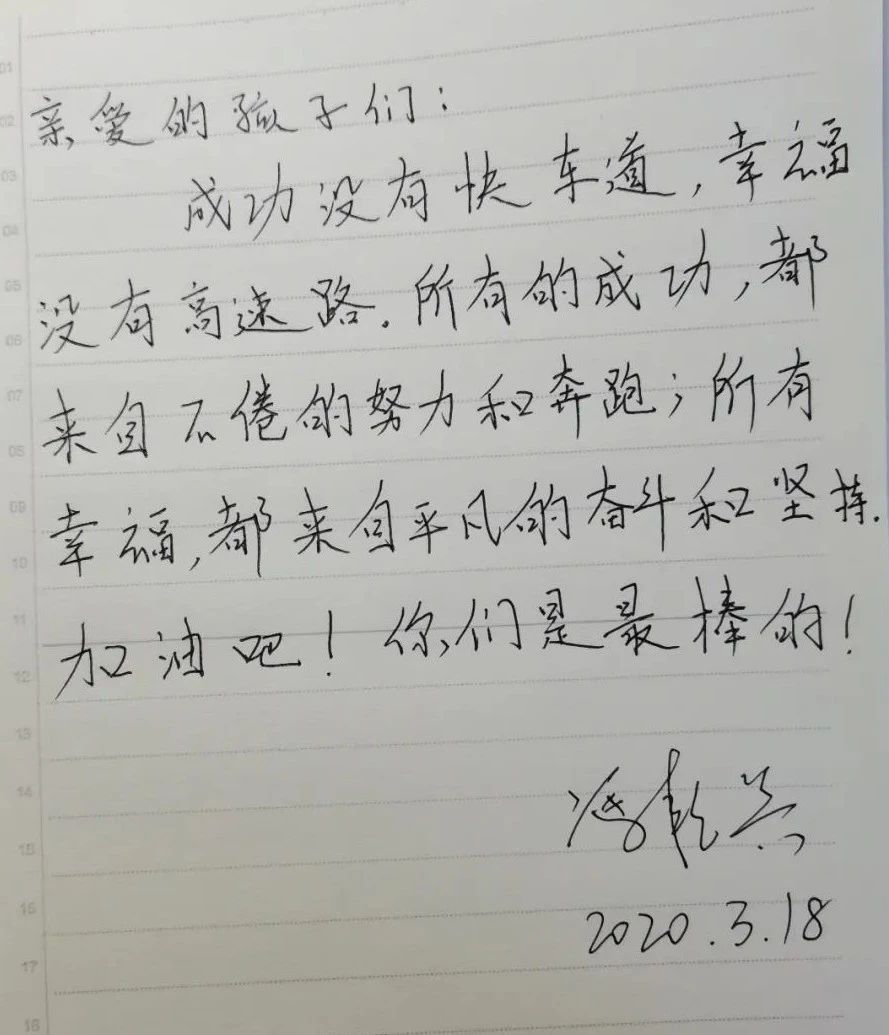 亲爱的孩子们：
成功没有快车道，幸福
没有高速路。所有的成功，都
来自不倦的努力和奔跑；所有
幸福，都来自平凡的奋斗和坚持。
加油吧！你们是最棒的！
2020.3.18
01
02
03
04
05
06
07
08
09
10
11
12
13
14
15
16
17
18